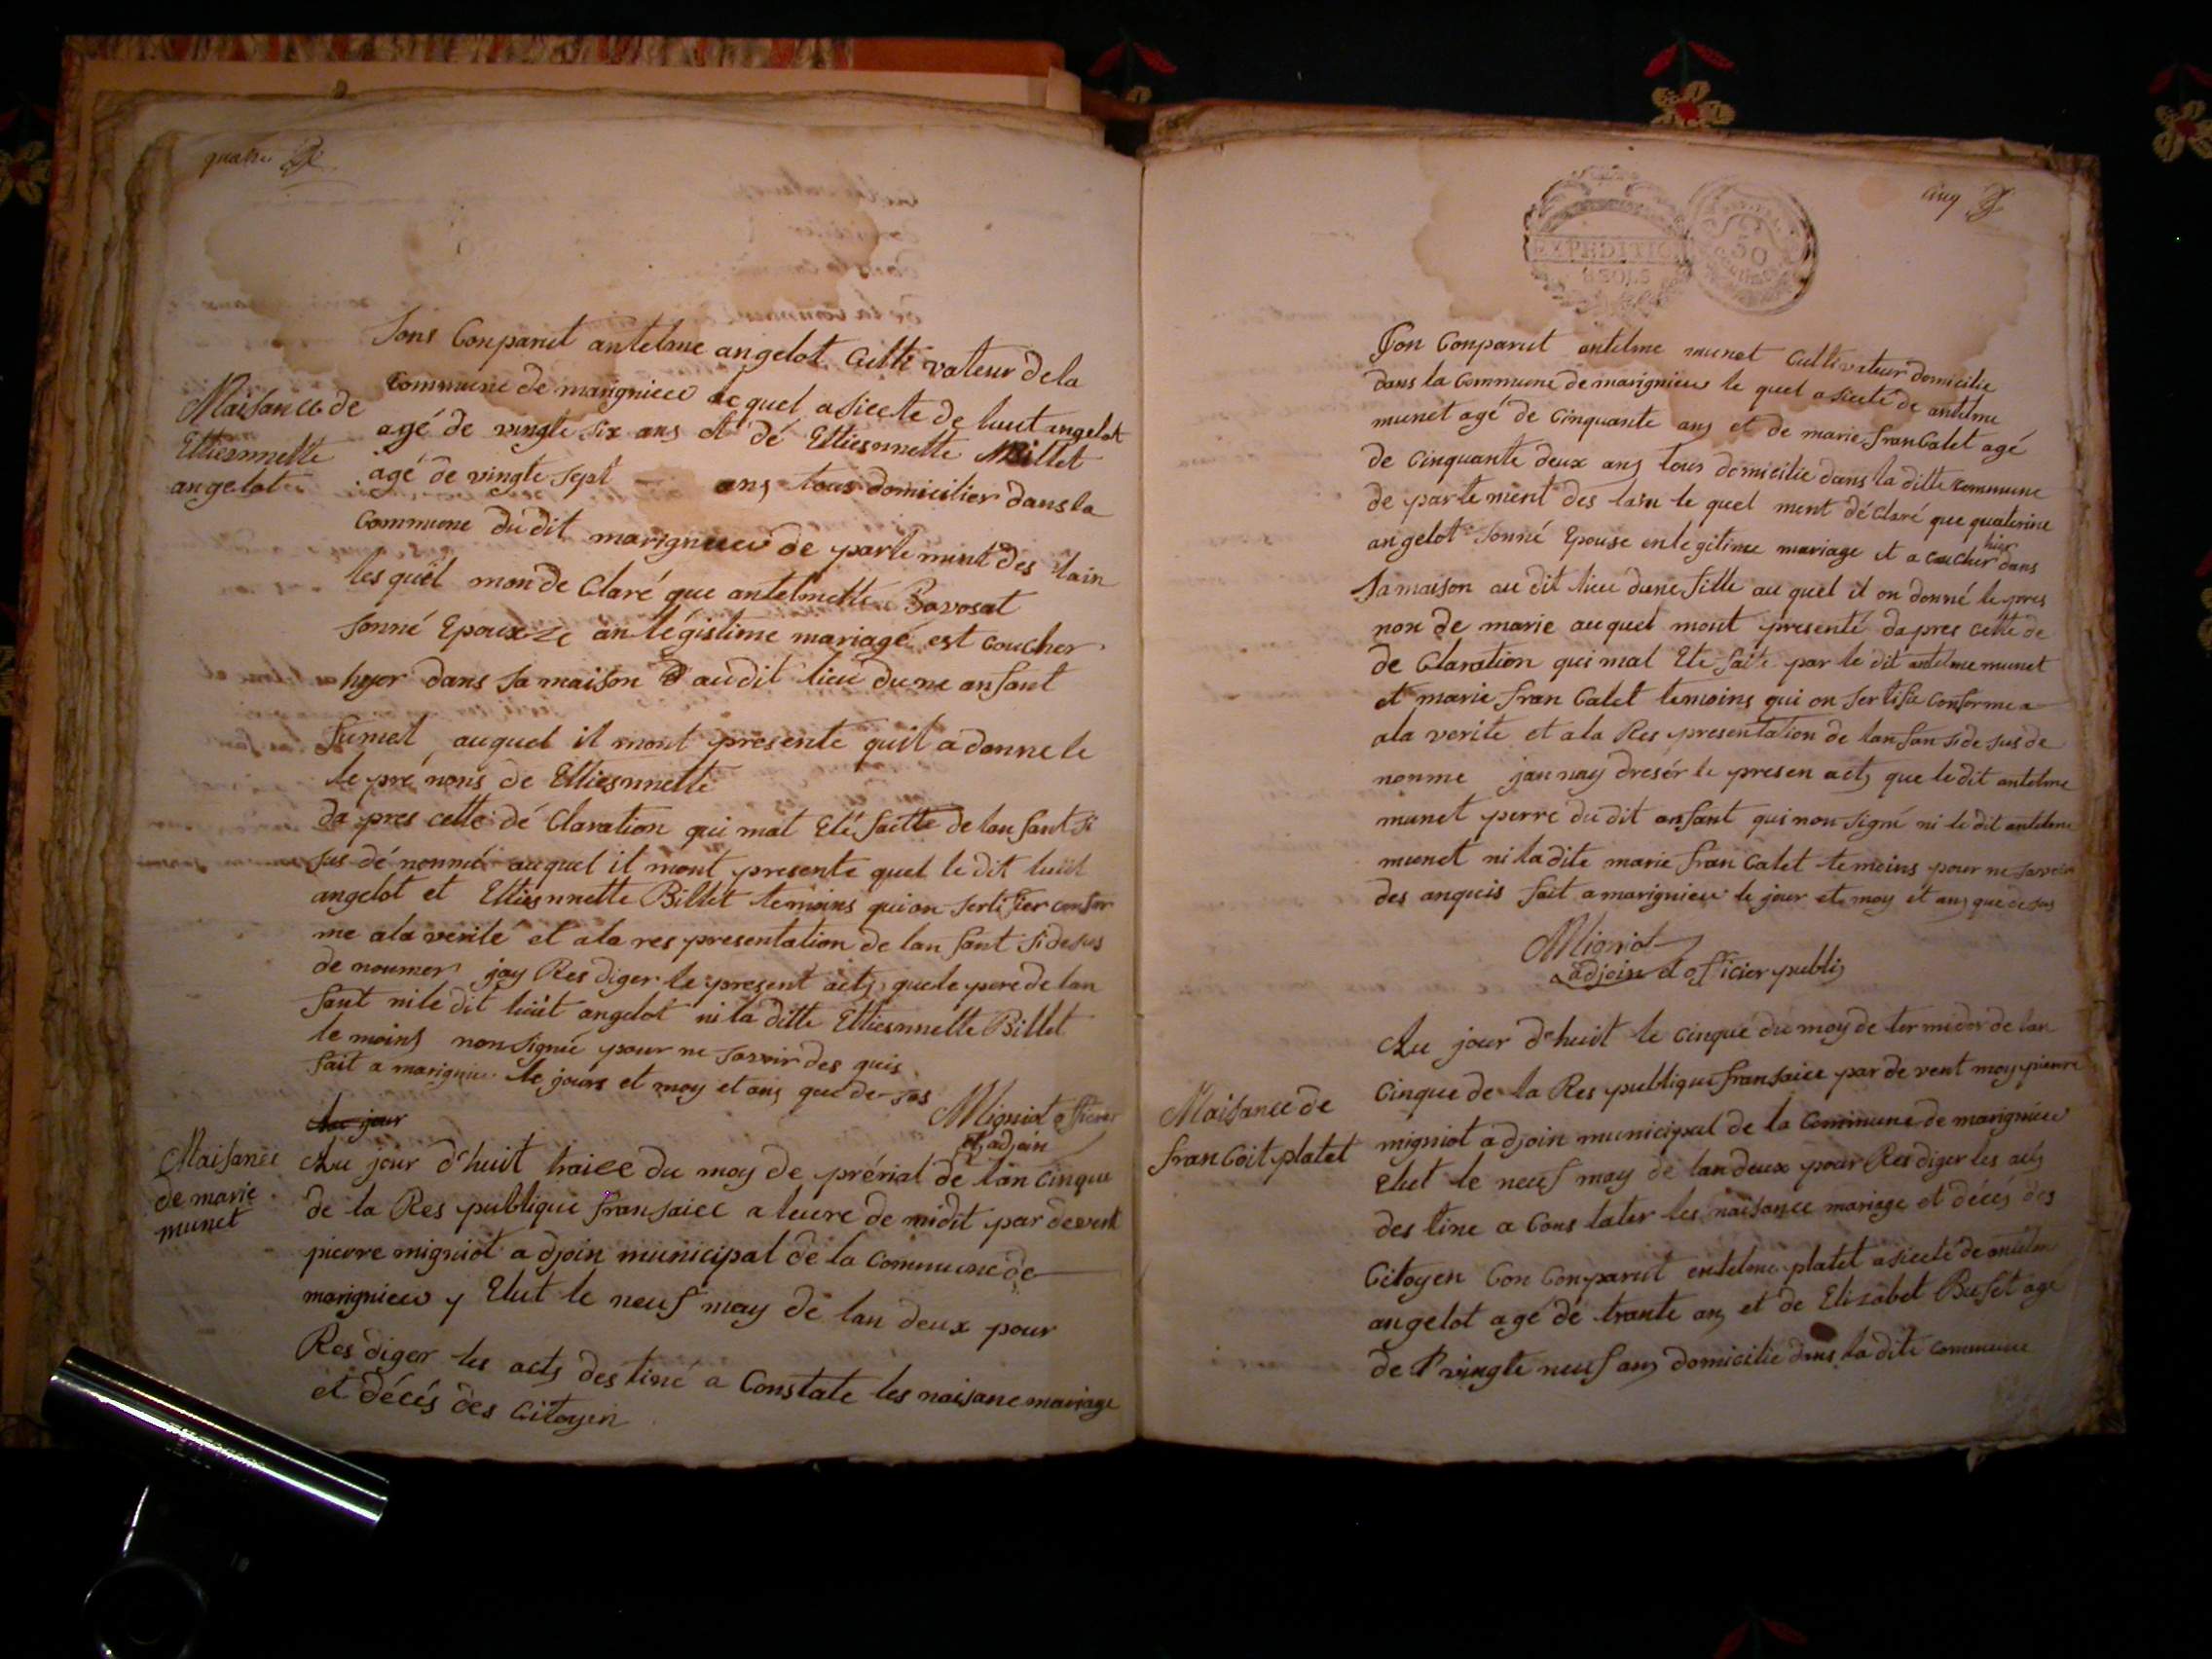 quatre
Sons Conparut antelme angelot Culti vateur de la
commune de marignieee le quel a siecte de luut angelot
agé de vingte six ans et dé Ettiesnnette Millet
agé de vingte sept ans tous domicilier dans la
Commune du dit marignieu de parte ment des lain
les quël mon de Claré que antelmette Bavosat
sonné Epouxze an légistime mariage est coucher
hyer dans sa maison audit lieu dune anfant
fumel auquel il mont presente quil a donne le
le pré nons de Ettiesnnette
da pres cette dé Claration qui mat Eté faitte de lanfant si
sus dé nonmé auquel il mont presente quel le dit luut
angelot et Ettiesnnette Billet temoins quion sertifier confor
me ala verité et ala res presentation de lan fant si desus
de noumer jay Res diger le present acts que le pere de lan
fant ni le dit luut angelot ni la ditte Ettiesnnette Billet
temoins non signié pour ne savoir des quis
fait a marignieu le jours et moy et ans que de sus
Migniot officier
et adjoin
Au jour
Naisance de
Ettiesnnette
angelot
Naisance
de marie
munet
Au jour d'huit traice du moy de prérial de lan Cinque
de la Res publique fransaice a leure de midit par devent
pierre migniot a djoin municipal de la Commune de
marignieu y Elut le neuf may de lan deux pour
Res diger les acts des tiné a Constate les naisane mariage
et décés des Citoyen
Cinq
EXPEDITION
8 SOLS
50
Con Conparut antelme munet Cultivateur domicilie
dans la Commune de marignieu le quel a siecté de antelme
munet agé de Cinquante ans et de marie fran Calet agé
de Cinquante deux ans tous domicilie dans la ditte commune
de parte ment des lain le quel ment déClaré que quaterine
angelot sonné Epouse en legitime mariage et a coucher hier dans
sa maison au dit lieu dune fille au quel il on donné le pres
non de marie auquel mont presenté dapres cette de
de Claration qui mat Ete faite par le dit antelme munet
et marie fran Calet temoins qui on sertifie Conforme a
ala verité et ala Res presentation de lanfan si de sus de
nonme jan nay dresér le presen acts que ledit antelme
munet perre du dit anfant qui non signé ni le dit antelme
munet ni ladite marie fran Calet temoins pour ne savoir
des anquis fait a marignieu le jour et moy et ans que de sus
Migniot
adjoin et officier publis
Naisance de
fran Coit platet
Au jour d'huit le Cinque du moy de ter midor de lan
Cinque de la Res publique fransaice par de vent moy pierre
migniot a djoin municipal de la Commune de marignieu
Elut le neuf may de lan deux pour Res diger les acts
des tine a Cons tater les naisance mariage et décés des
Citoyen Con Conparut entelme platet a siecté de antelm
angelot agé de trante ans et de Elisabet Bufet agé
de vingte neuf ans domicilie dans la dite commune